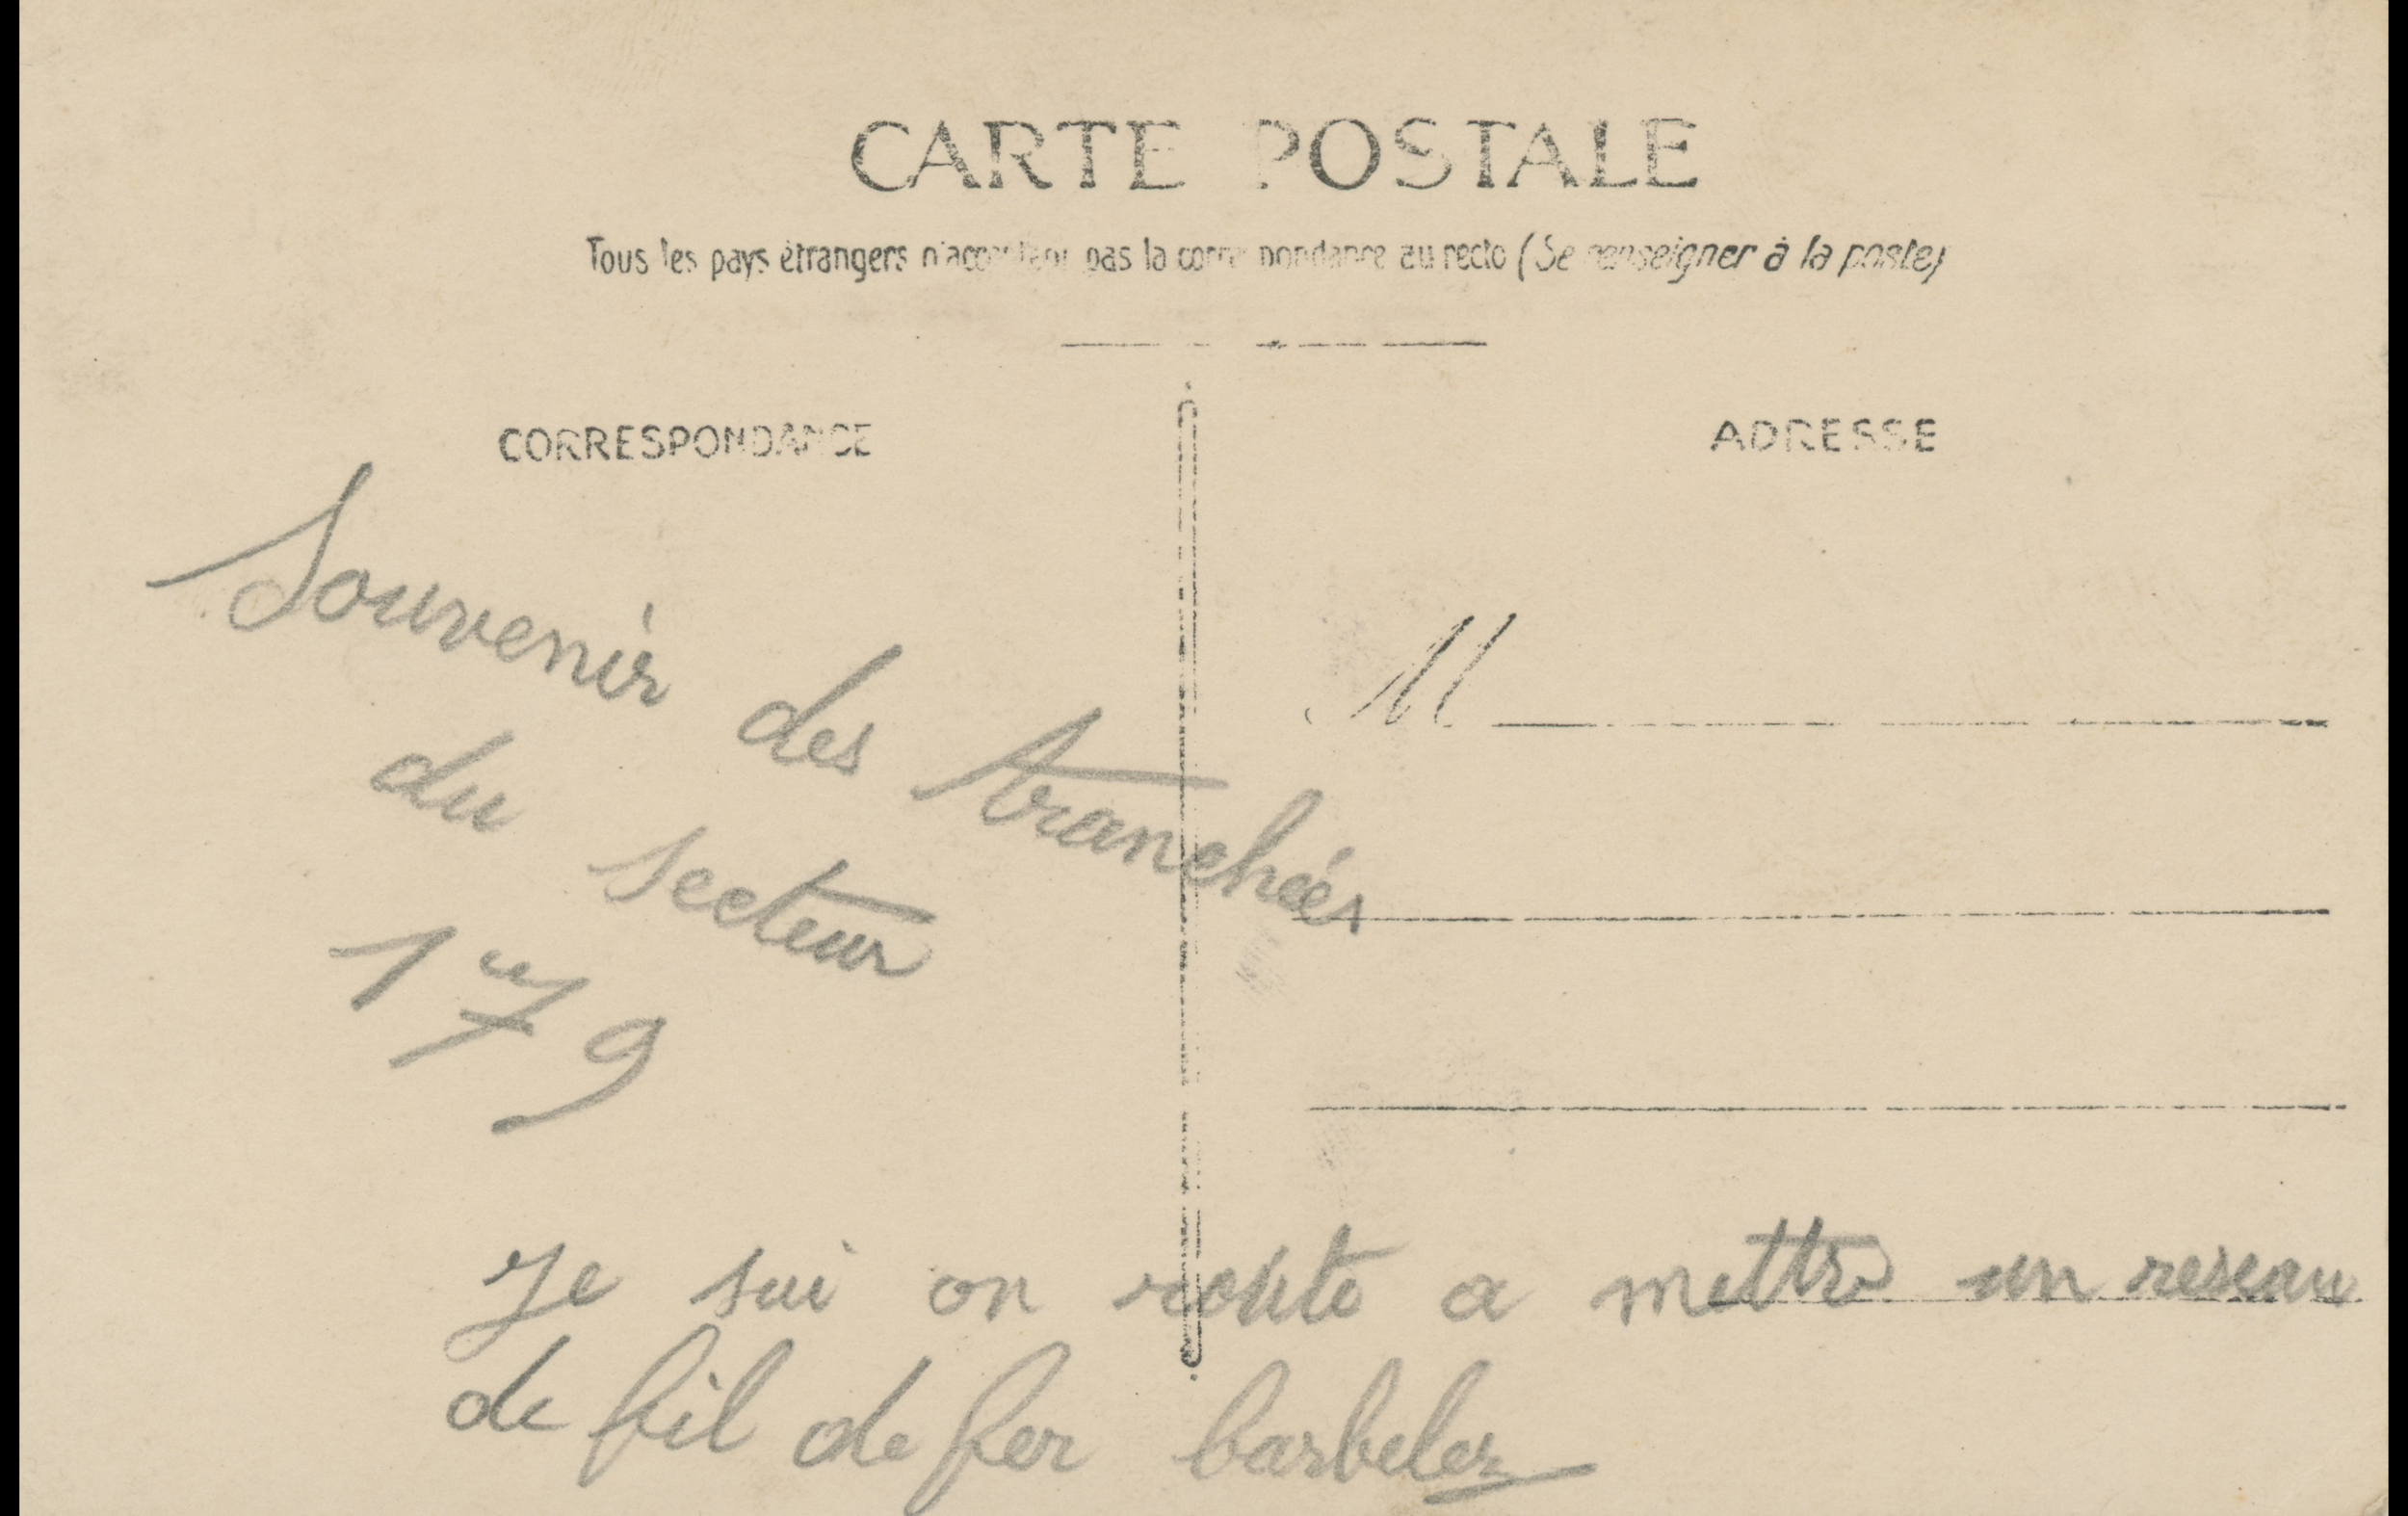 CARTE POSTALE
Tous les pays étrangers n'acceptant pas la correspondance au recto (Se renseigner à la poste)
CORRESPONDANCE
ADRESSE
M
Souvenir des tranchées
du secteur
179
Je sui on route a mettre un reseau
de fil de fer barbelez